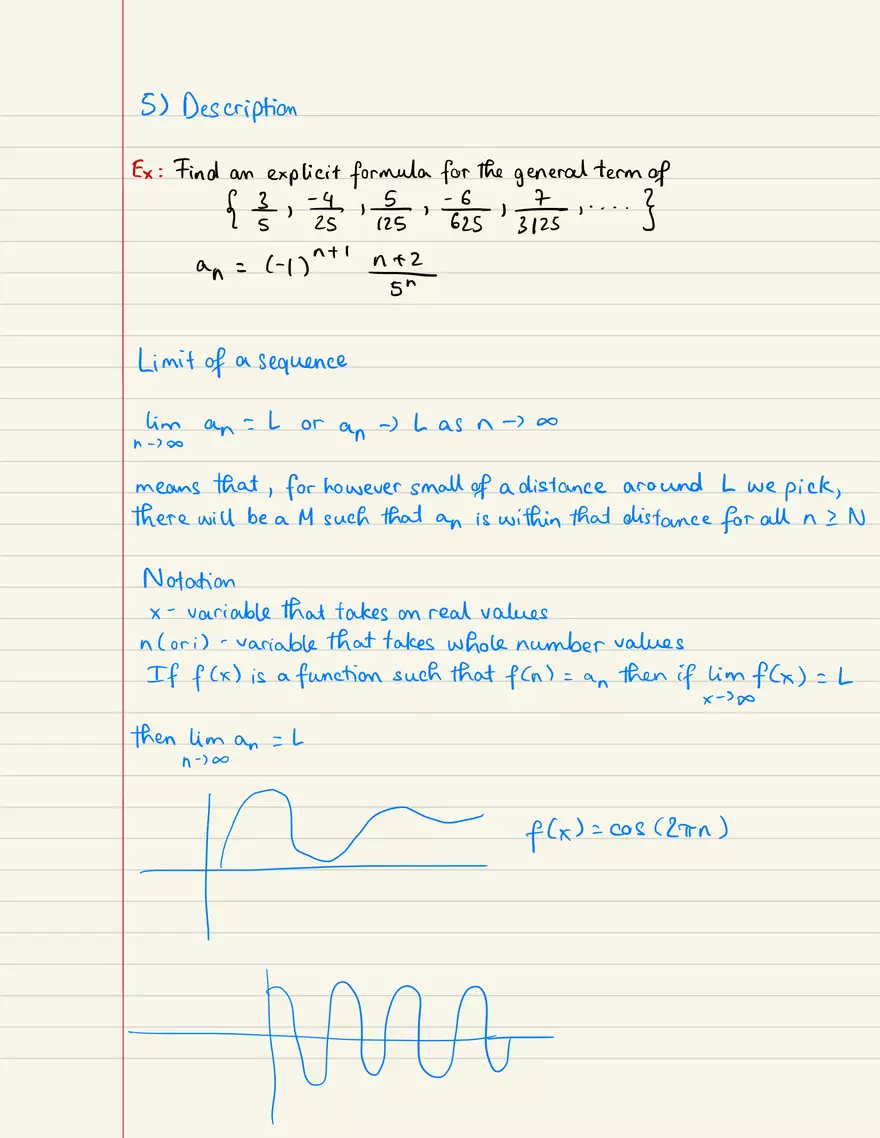 5) Description
Ex: Find an explicit formula for the general term of
{ 3/5, -4/25, 5/125, -6/625, 7/3125, .... }
aₙ = (-1)ⁿ⁺¹ (n+2)/5ⁿ
Limit of a sequence
lim n→∞ aₙ = L or aₙ → L as n → ∞
means that, for however small of a distance around L we pick,
there will be a M such that aₙ is within that distance for all n ≥ N
Notation
x - variable that takes on real values
n (or i) - variable that takes whole number values
If f(x) is a function such that f(n) = aₙ then if lim x→∞ f(x) = L
then lim n→∞ aₙ = L
f(x) = cos(2πn)